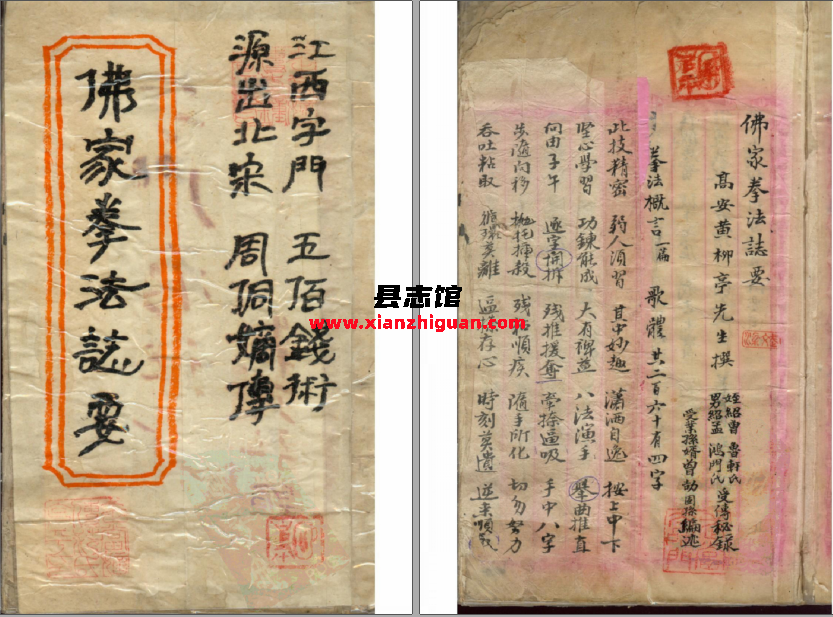 江西字門 五佰錢術
源出北宋 周侗嫡傳
佛家拳法誌要
佛家拳法誌要
高安黄柳亭先生撰
姪紹曾 魯軒氏
男紹孟 鴻門氏 受傳秘錄
受業孫婿曾 編述
拳法概言一篇 歌體 共二百六十有四字
此技精密 弱人須習 其中妙趣 瀟洒自逸 按上中下
堅心學習 功鍊能成 大有裨益 八法演手 曲推直
由子午 逐字開拆 残推援奪 牽捺逼吸 手中八字
步隨向移 残 順疾 隨手所化 切勿努力
吞吐粘取 循環莫離 逼 存心 時刻莫遺 逆来順
县志馆
www.xianzhiguan.com